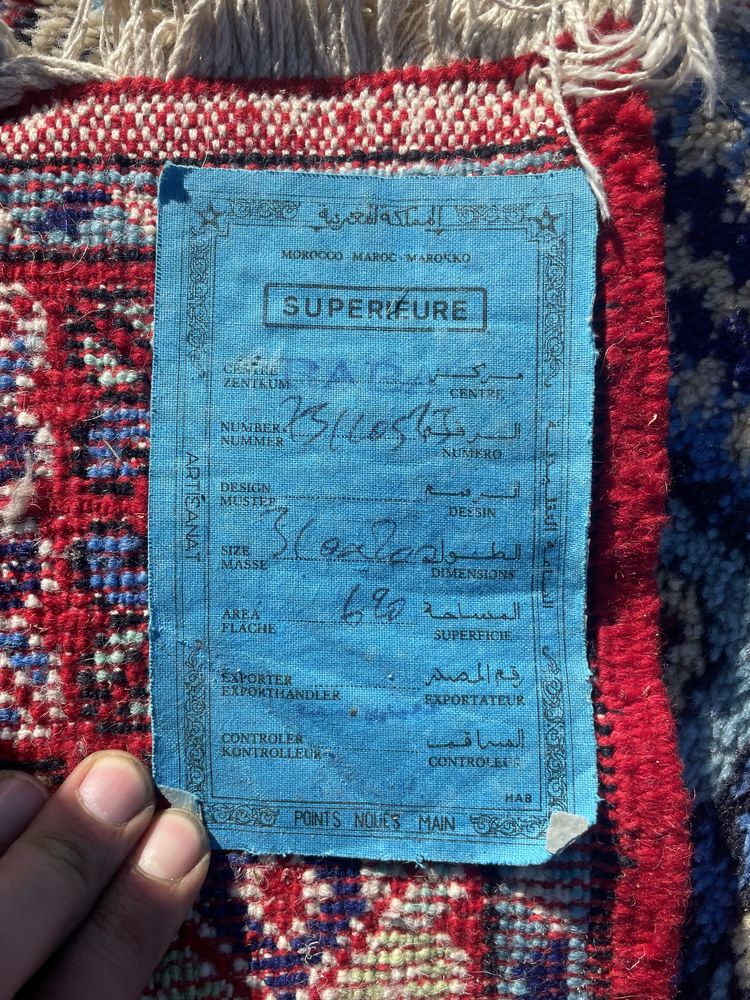 المملكة المغربية
MOROCCO MAROC MAROKKO
SUPERIEURE
CENTRE مركز
ZENTKUM CENTRE
NUMBER الرقم
NUMMER NUMERO
DESIGN الرسم
MUSTER DESSIN
SIZE الطول
MASSE DIMENSIONS
AREA المساحة
FLÄCHE SUPERFICIE
EXPORTER رقم المصدر
EXPORTHANDLER EXPORTATEUR
CONTROLER المراقب
KONTROLLEUR CONTROLEUR
HAB
POINTS NOUÉS MAIN
ARTISANAT
الصناعة التقليدية